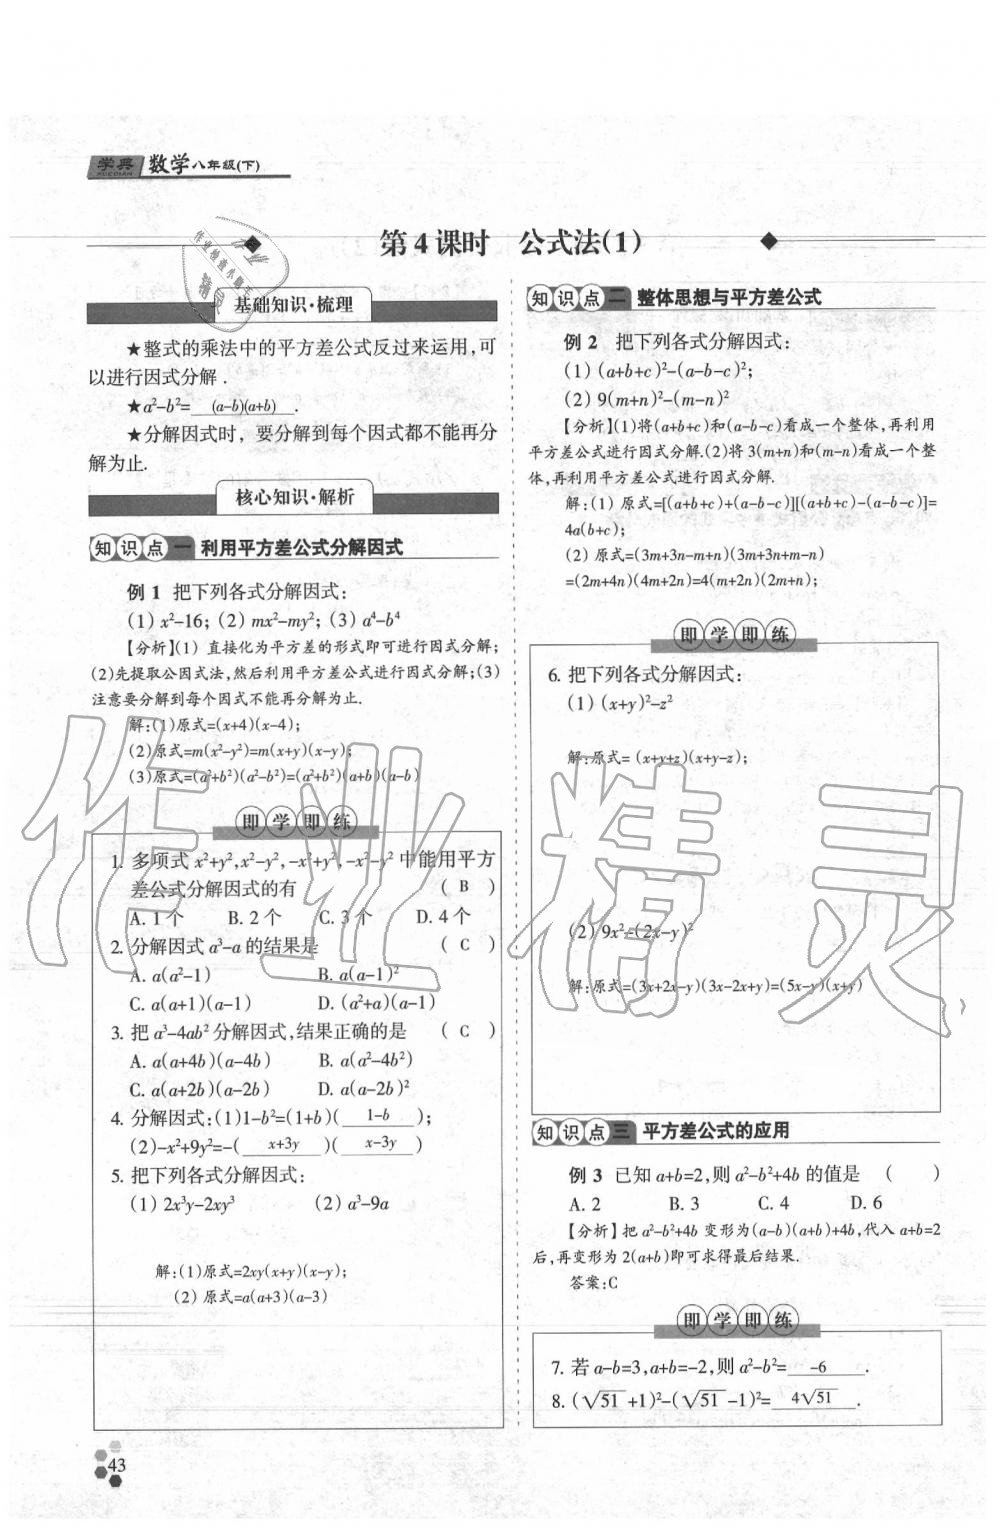 学典 数学八年级(下)
XUEDIAN
第4课时　公式法(1)
基础知识·梳理
★整式的乘法中的平方差公式反过来运用,可
以进行因式分解.
★a²-b²= (a-b)(a+b) .
★分解因式时，要分解到每个因式都不能再分
解为止.
核心知识·解析
知识点一 利用平方差公式分解因式
例1 把下列各式分解因式:
(1) x²-16; (2) mx²-my²; (3) a⁴-b⁴
【分析】(1) 直接化为平方差的形式即可进行因式分解;
(2)先提取公因式法,然后利用平方差公式进行因式分解;(3)
注意要分解到每个因式不能再分解为止.
解:(1)原式=(x+4)(x-4);
(2)原式=m(x²-y²)=m(x+y)(x-y);
(3)原式=(a²+b²)(a²-b²)=(a²+b²)(a+b)(a-b)
即学即练
1. 多项式 x²+y²,x²-y²,-x²+y²,-x²-y² 中能用平方
差公式分解因式的有 ( B )
A. 1个 B. 2个 C. 3个 D. 4个
2. 分解因式 a³-a 的结果是 ( C )
A. a(a²-1) B. a(a-1)²
C. a(a+1)(a-1) D. (a²+a)(a-1)
3. 把 a³-4ab² 分解因式,结果正确的是 ( C )
A. a(a+4b)(a-4b) B. a(a²-4b²)
C. a(a+2b)(a-2b) D. a(a-2b)²
4. 分解因式:(1)1-b²=(1+b)( 1-b );
(2)-x²+9y²=-( x+3y )( x-3y )
5. 把下列各式分解因式:
(1) 2x³y-2xy³ (2) a³-9a
解:(1)原式=2xy(x+y)(x-y);
(2) 原式=a(a+3)(a-3)
43
知识点二 整体思想与平方差公式
例2 把下列各式分解因式:
(1) (a+b+c)²-(a-b-c)²;
(2) 9(m+n)²-(m-n)²
【分析】(1)将(a+b+c)和(a-b-c)看成一个整体,再利用
平方差公式进行因式分解.(2)将 3(m+n)和(m-n)看成一个整
体,再利用平方差公式进行因式分解.
解:(1) 原式=[(a+b+c)+(a-b-c)][(a+b+c)-(a-b-c)]=
4a(b+c);
(2) 原式=(3m+3n-m+n)(3m+3n+m-n)
=(2m+4n)(4m+2n)=4(m+2n)(2m+n);
即学即练
6. 把下列各式分解因式:
(1) (x+y)²-z²
解:原式= (x+y+z)(x+y-z);
(2) 9x²-(2x-y)²
解:原式=(3x+2x-y)(3x-2x+y)=(5x-y)(x+y)
知识点三 平方差公式的应用
例3 已知 a+b=2,则 a²-b²+4b 的值是 ( )
A. 2 B. 3 C. 4 D. 6
【分析】把 a²-b²+4b 变形为(a-b)(a+b)+4b,代入 a+b=2
后,再变形为 2(a+b)即可求得最后结果.
答案:C
即学即练
7. 若 a-b=3,a+b=-2,则 a²-b²= -6 .
8. (√51+1)²-(√51-1)²= 4√51 .
作业精灵